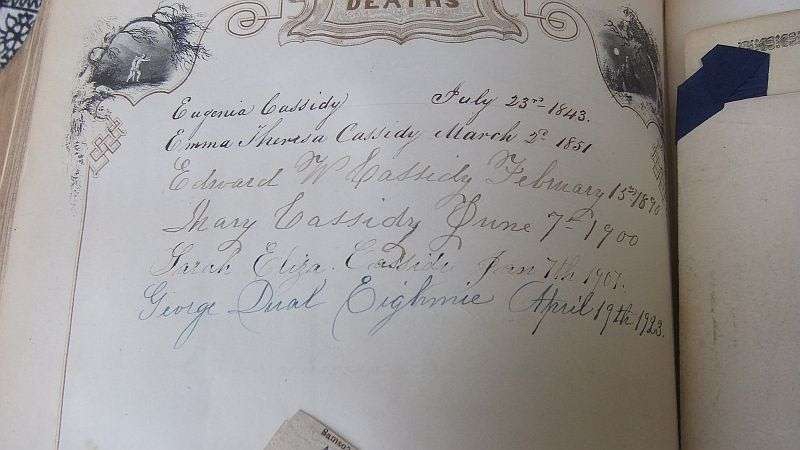 DEATHS
Eugenia Cassidy July 23rd 1843.
Emma Theresa Cassidy March 2d 1851
Edward W Cassidy February 15th 1890
Mary Cassidy June 7th 1900
Sarah Eliza Cassidy Jan 7th 1907.
George Dual Eighmie April 19th 1923.